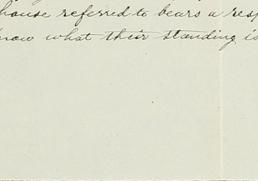 house referred to bears a resp
now what their standing is